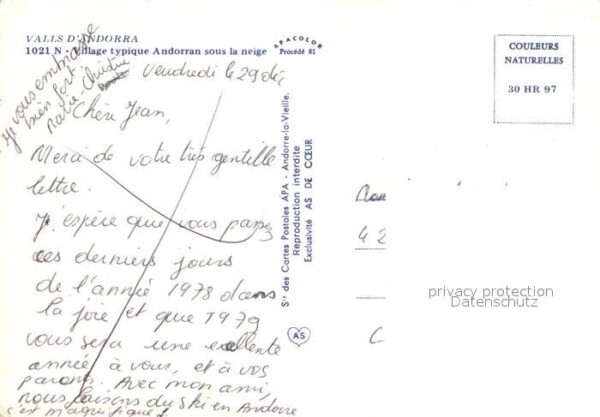 VALLS D'ANDORRA
1021 N - Village typique Andorran sous la neige
APACOLOR
Procédé 81
COULEURS
NATURELLES
30 HR 97
Je vous embrasse
bien fort.
Marie-Christine
Vendredi le 29 déc
Chère Jean,
Merci de votre très gentille
lettre.
J'espère que vous passez
ces derniers jours
de l'année 1978 dans
la joie et que 1979
vous sera une excellente
année à vous, et à vos
parents. Avec mon ami,
nous faisons du ski en Andorre
c'est magnifique!
Sté des Cartes Postales APA - Andorre-la-Vieille.
Reproduction interdite
Exclusivité AS DE CŒUR
AS
42
C
privacy protection
Datenschutz